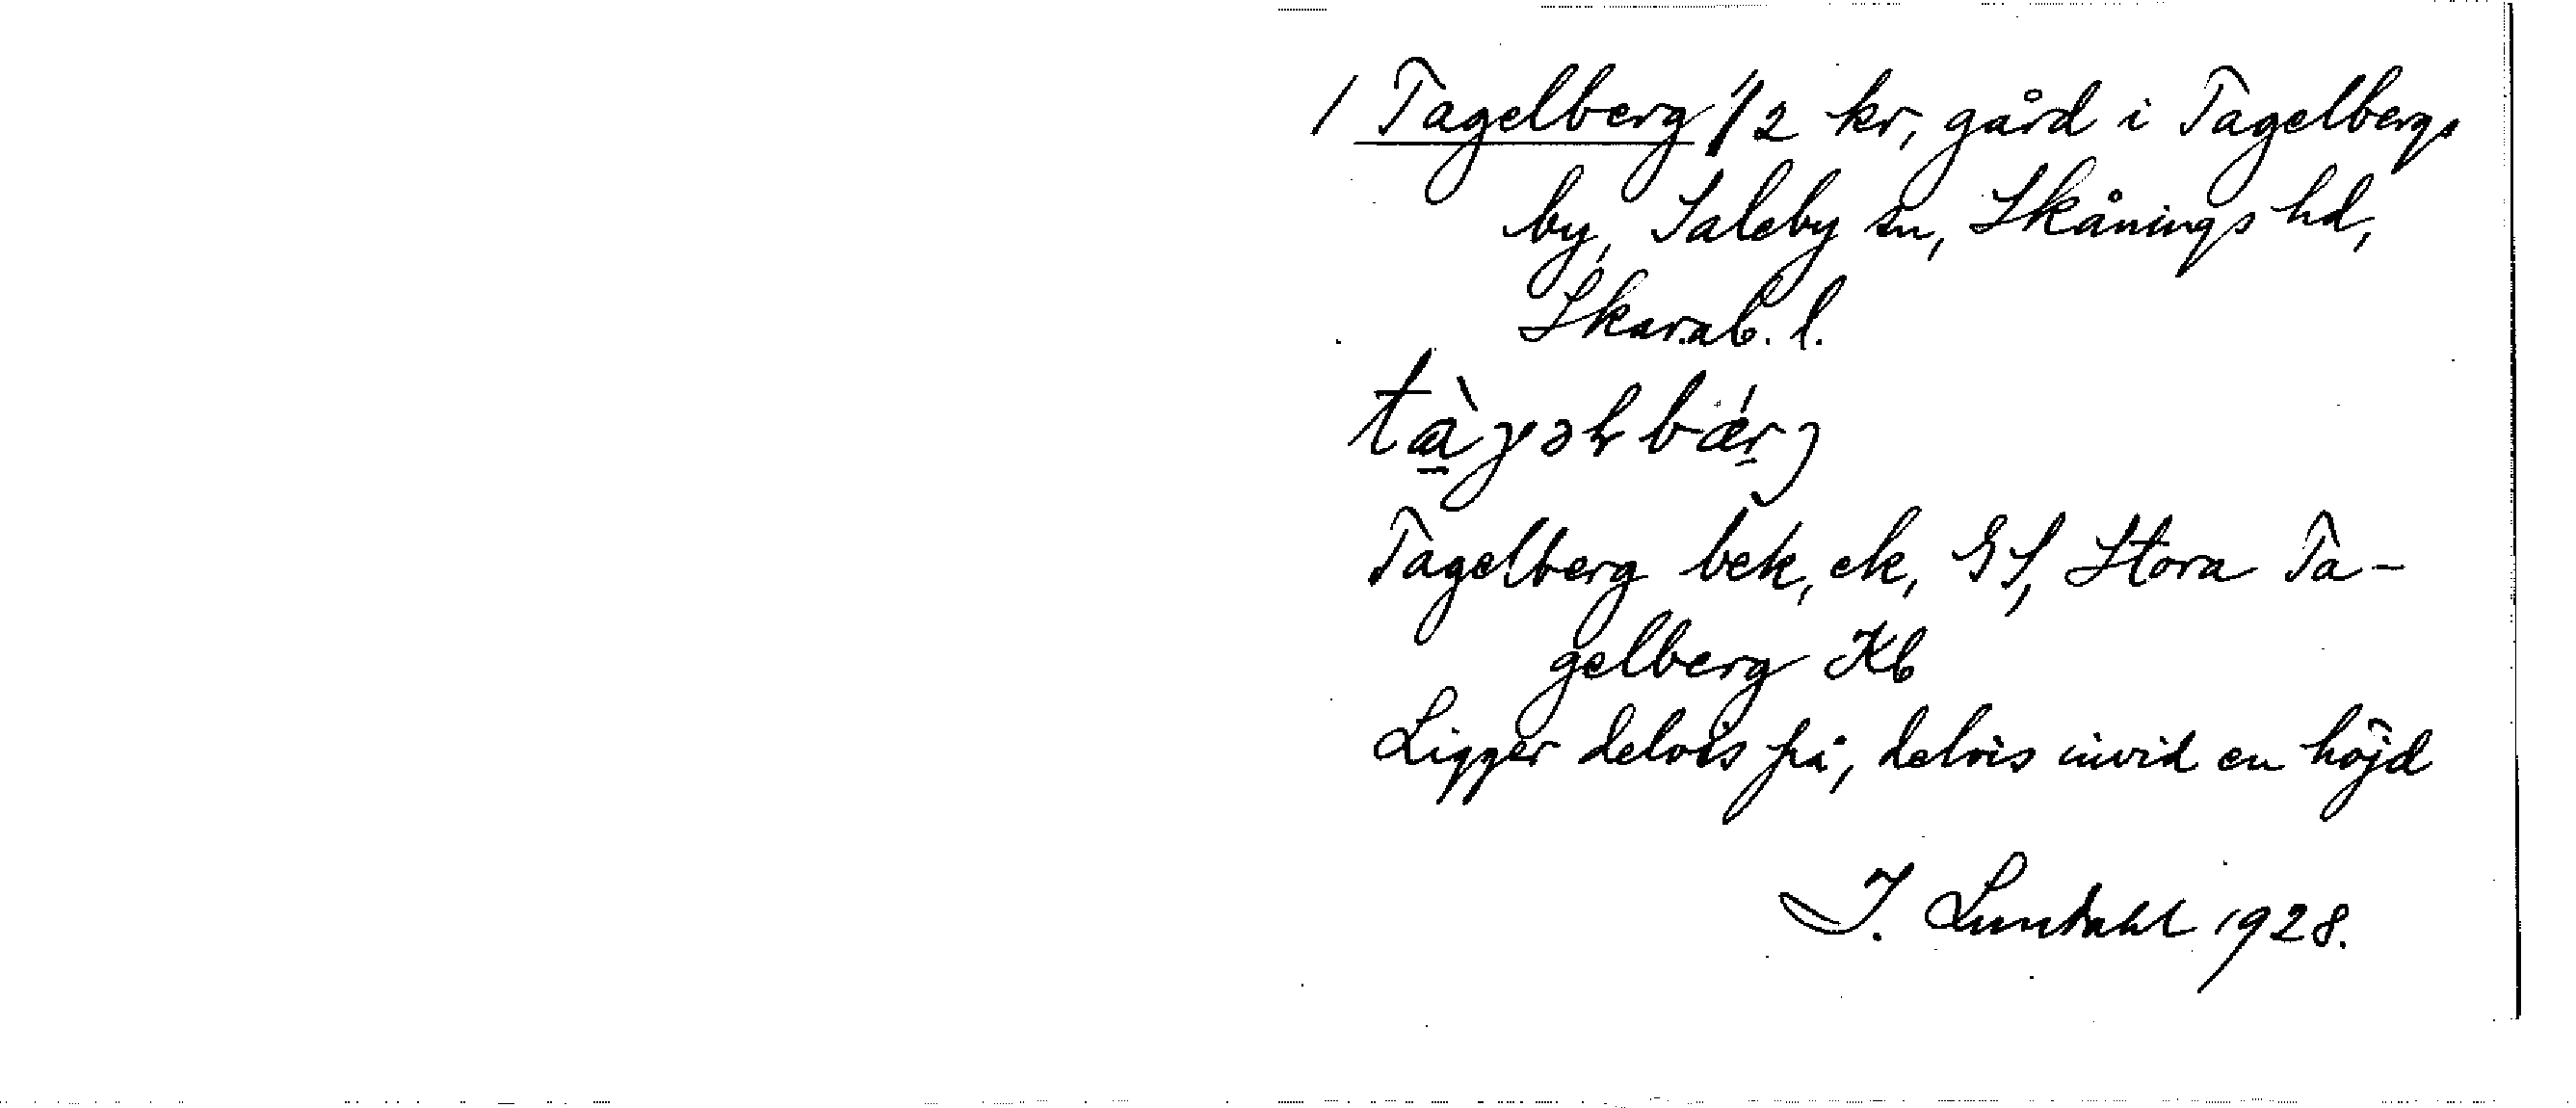 / Tagelberg 1/2 kr, gård i Tagelbergs
by, Saleby sn, Skånings hd,
Skarab. l.
Tagelberg bek, ek, GS, Stora Ta-
gelberg Kb
Ligger delvis på, delvis invid en höjd
I. Lundahl 1928.